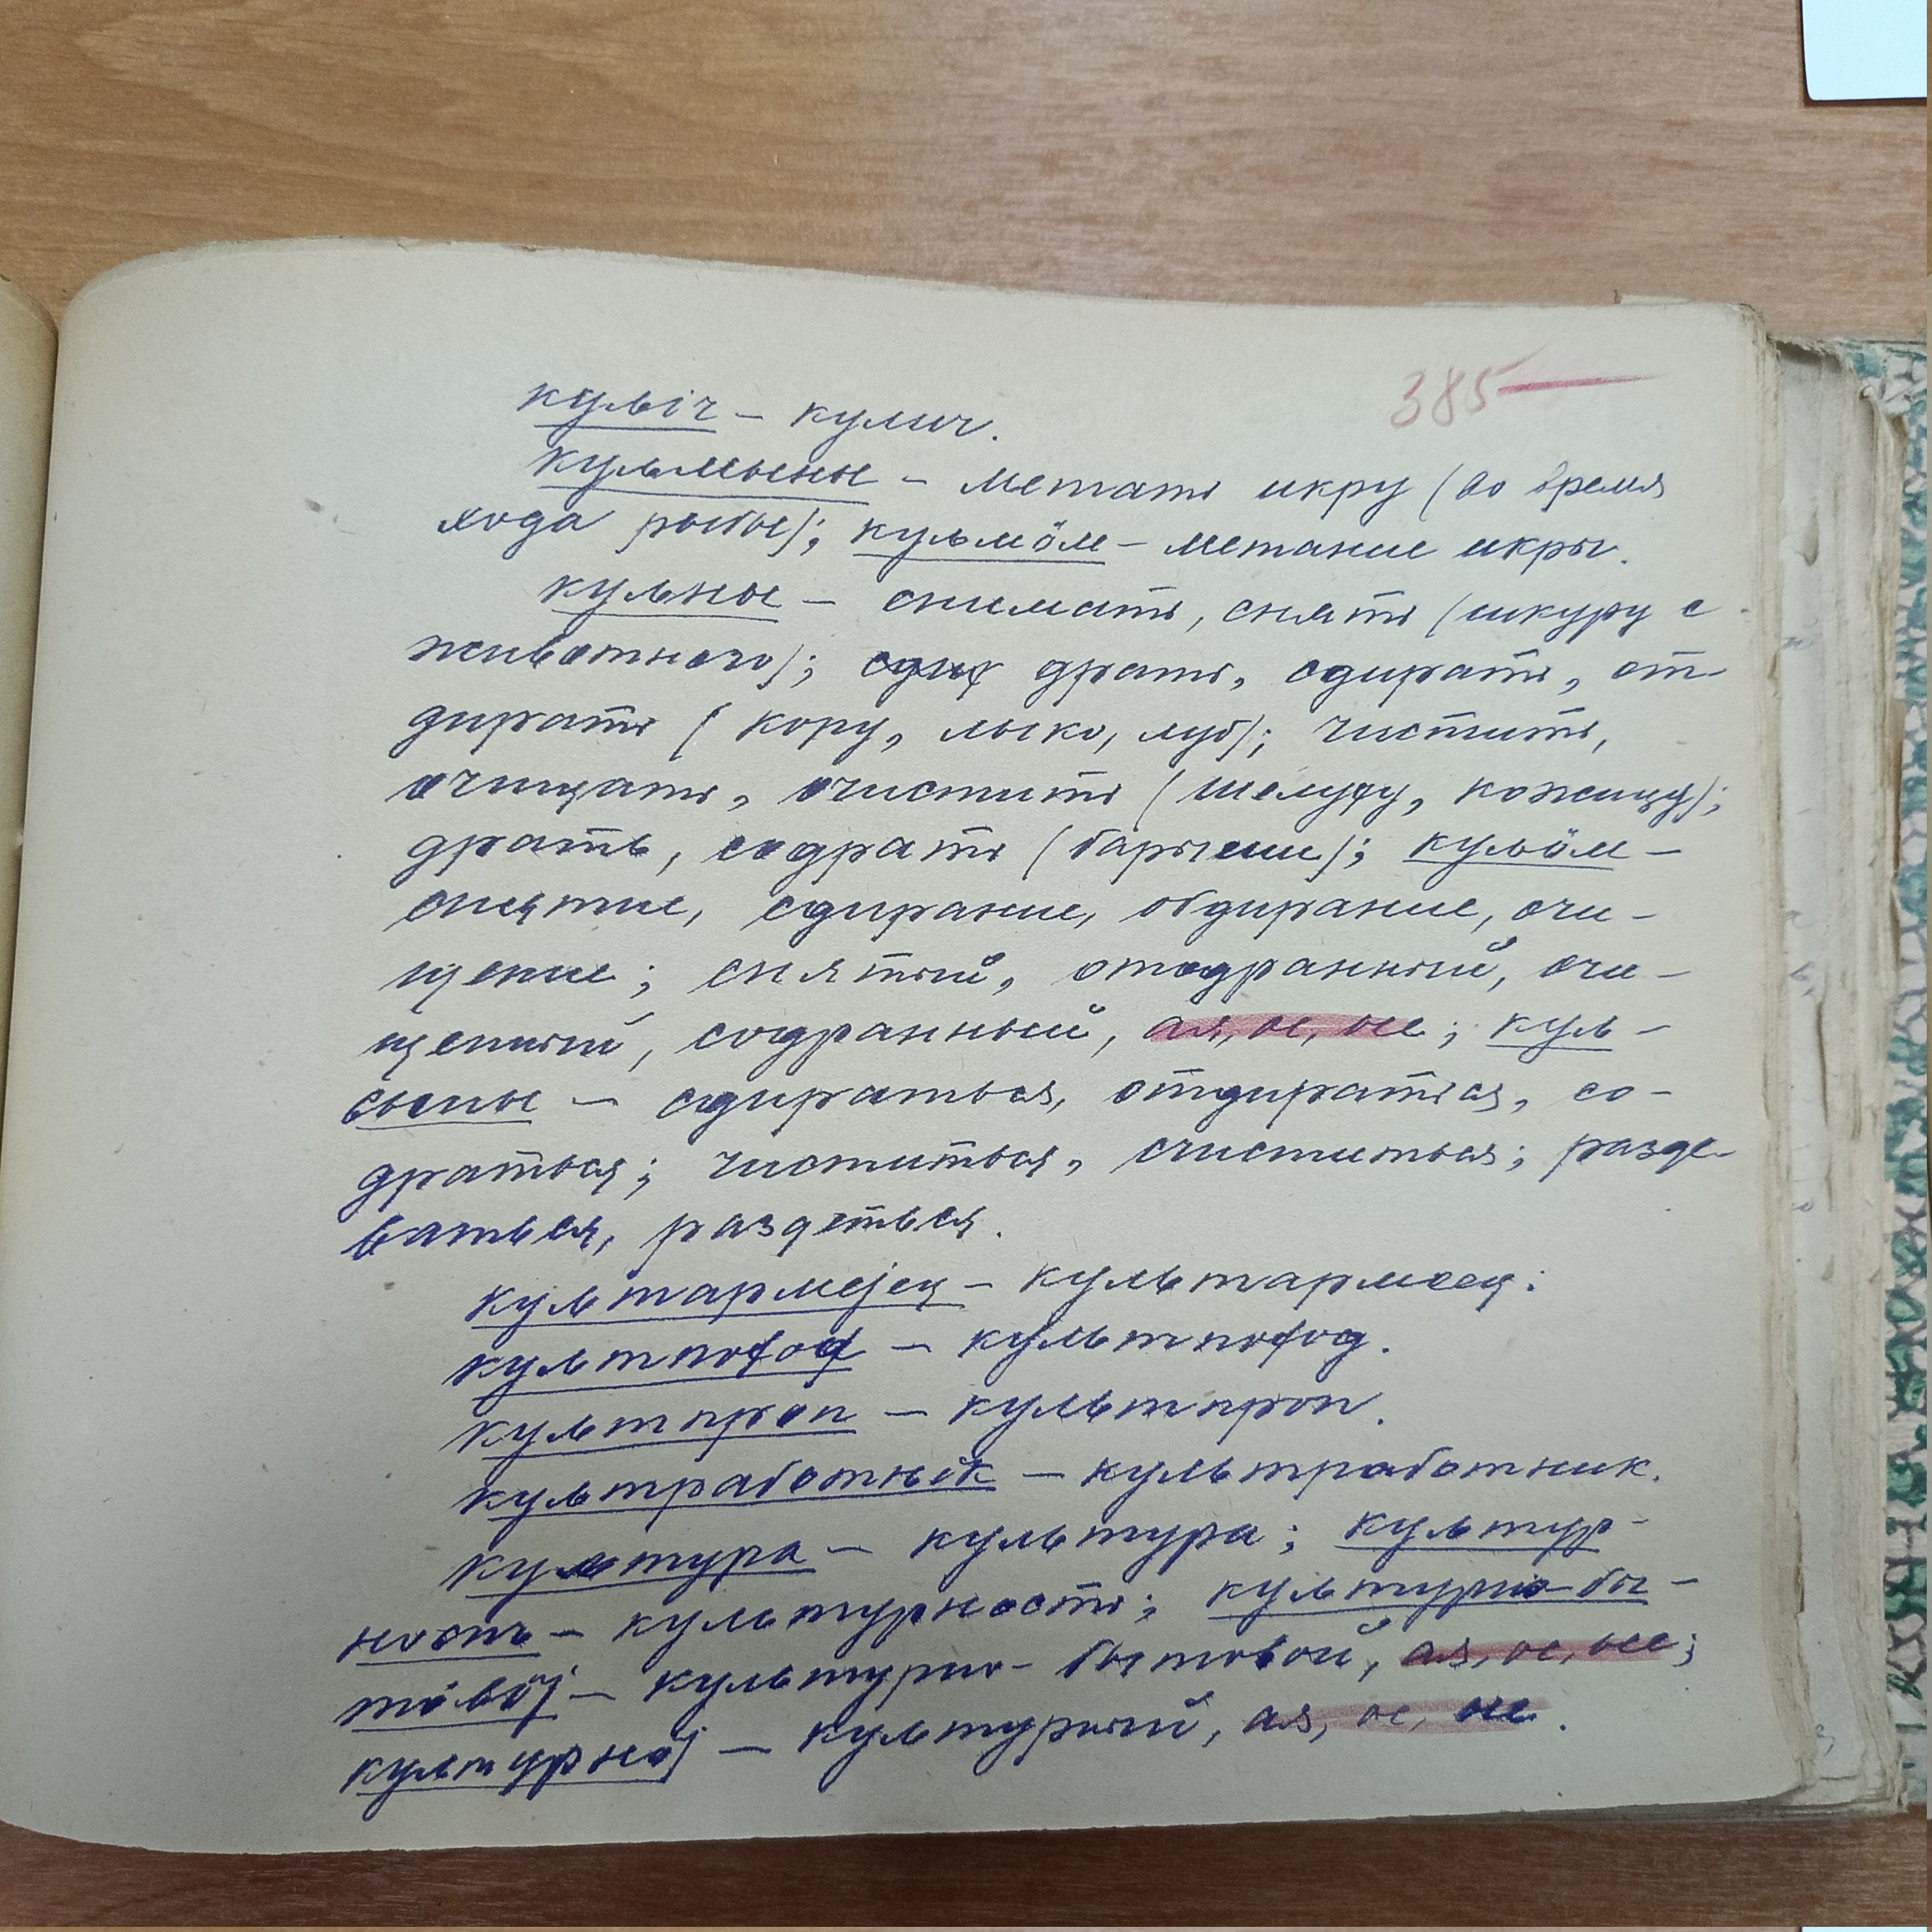 385
кульіч – кулич.
кульмыны – метать икру (во время
хода рыбы); кульмӧм – метание икры.
кульны – снимать, снять (шкуру с
животного); драть, сдирать, от-
дирать (кору, лыко, луб); чистить,
очищать, очистить (шелуху, кожицу);
драть, содрать (барыши); кульӧм –
снятие, сдирание, обдирание, очи-
щение; снятый, отодранный, очи-
щенный, содранный, ая, ое, ые; куль-
сьыны – сдираться, отдираться, со-
драться; чиститься, счиститься; разде-
ваться, раздеться.
культармејец – культармеец.
культпоход – культпоход.
культпроп – культпроп.
культработньік – культработник.
культура – культура; культур-
ность – культурность; культурно-бы-
тӧвӧј – культурно-бытовой, ая, ое, ые;
культурнӧј – культурный, ая, ое, ые.